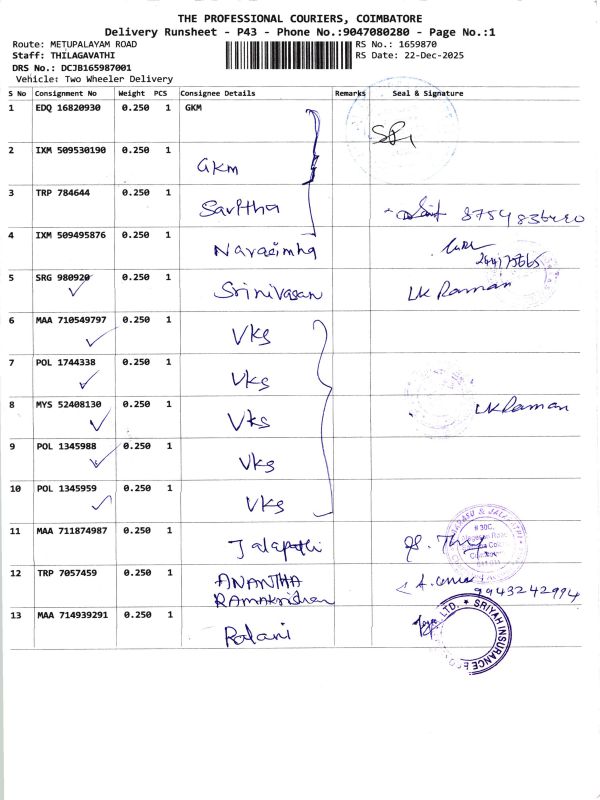 THE PROFESSIONAL COURIERS, COIMBATORE
Delivery Runsheet - P43 - Phone No.:9047080280 - Page No.:1
Route: METUPALAYAM ROAD RS No.: 1659870
Staff: THILAGAVATHI RS Date: 22-Dec-2025
DRS No.: DCJB165987001
Vehicle: Two Wheeler Delivery
S No Consignment No Weight PCS Consignee Details Remarks Seal & Signature
1 EDQ 16820930 0.250 1 GKM
2 IXM 509530190 0.250 1 GKM
3 TRP 784644 0.250 1 Savitha
4 IXM 509495876 0.250 1 Narasimha
5 SRG 980920 0.250 1 Srinivasan LK Raman
6 MAA 710549797 0.250 1 Vks
7 POL 1744338 0.250 1 Vks
8 MYS 52408130 0.250 1 Vks LK Raman
9 POL 1345988 0.250 1 Vks
10 POL 1345959 0.250 1 Vks
11 MAA 711874987 0.250 1 Jalapathi
12 TRP 7057459 0.250 1 ANANTHA
RAMAKrishnan 9943242994
13 MAA 714939291 0.250 1 Palani
LTD. * SRIYAH INSURANCE